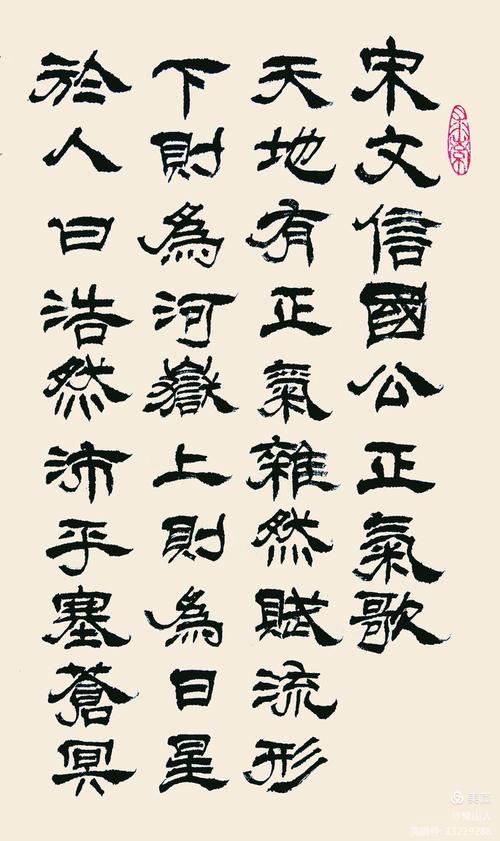 宋文信國公正氣歌
天地有正氣雜然賦流形
下則為河嶽上則為日星
於人曰浩然沛乎塞蒼冥